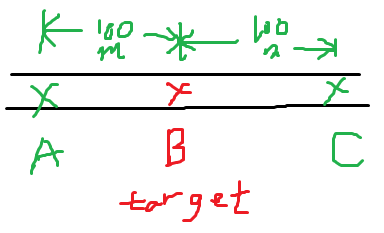 100 100
m m
X X X
A B C
target